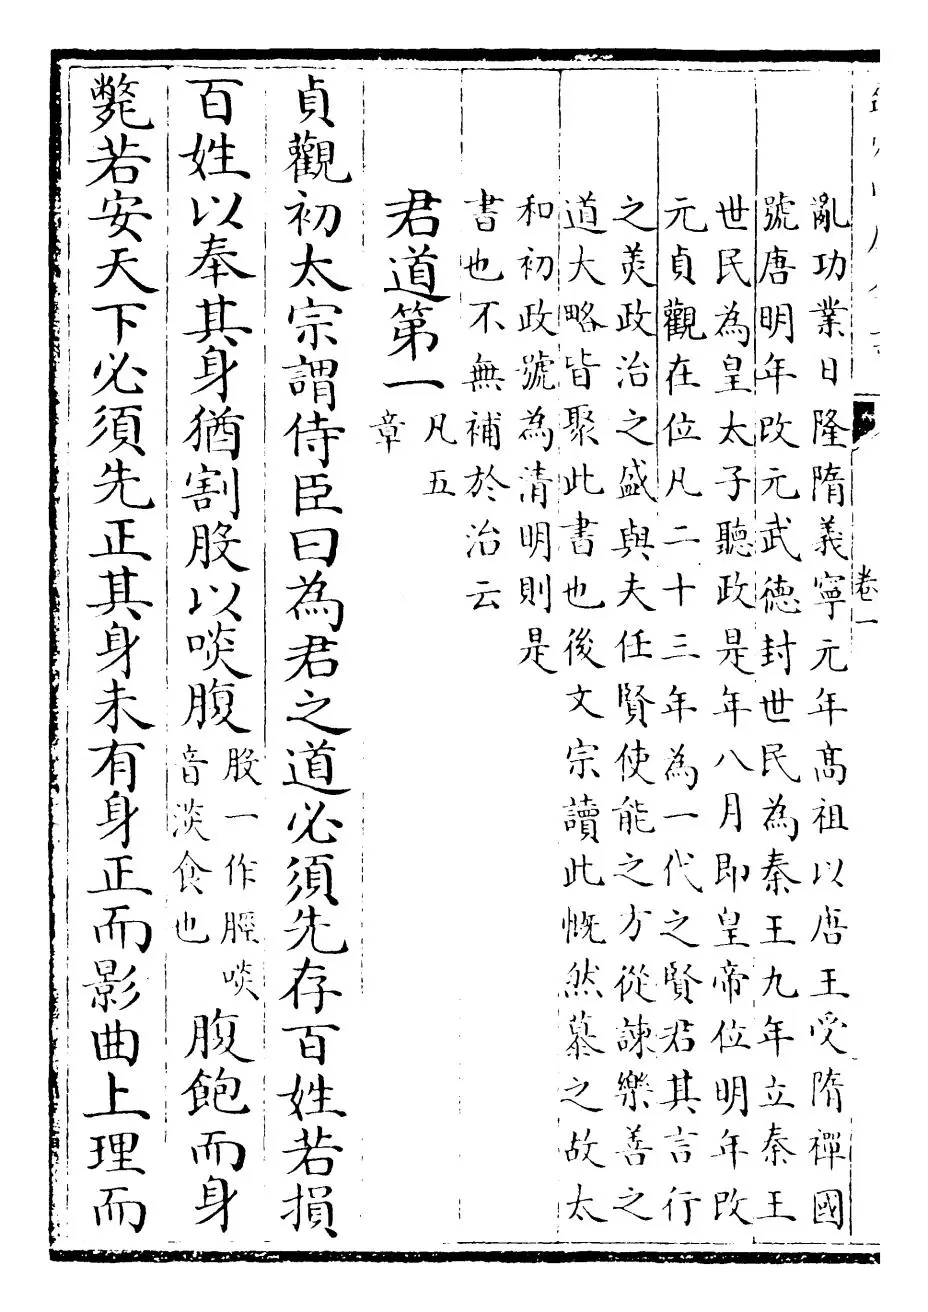 卷一
亂功業日隆隋義寧元年髙祖以唐王受隋禪國
號唐明年改元武徳封世民為秦王九年立秦王
世民為皇太子聽政是年八月即皇帝位明年改
元貞觀在位凡二十三年為一代之賢君其言行
之羙政治之盛與夫任賢使能之方從諫樂善之
道大略皆聚此書也後文宗讀此慨然慕之故太
和初政號為清明則是
書也不無補於治云
君道第一
凡五
章
貞觀初太宗謂侍臣曰為君之道必須先存百姓若損
百姓以奉其身猶割股以啖腹
股一作脛啖
音淡食也
腹飽而身
斃若安天下必須先正其身未有身正而影曲上理而